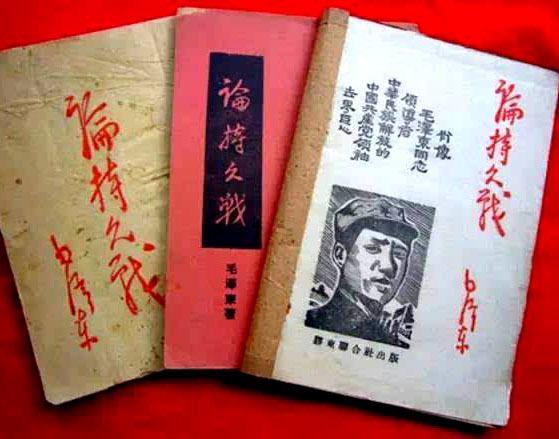 論持久战
毛泽东
論持久戰
毛澤東著
論持久战
毛泽东
肖像
毛澤東同志
領導者
中華民族解放的
中國共產党領袖
膠東聯合社出版